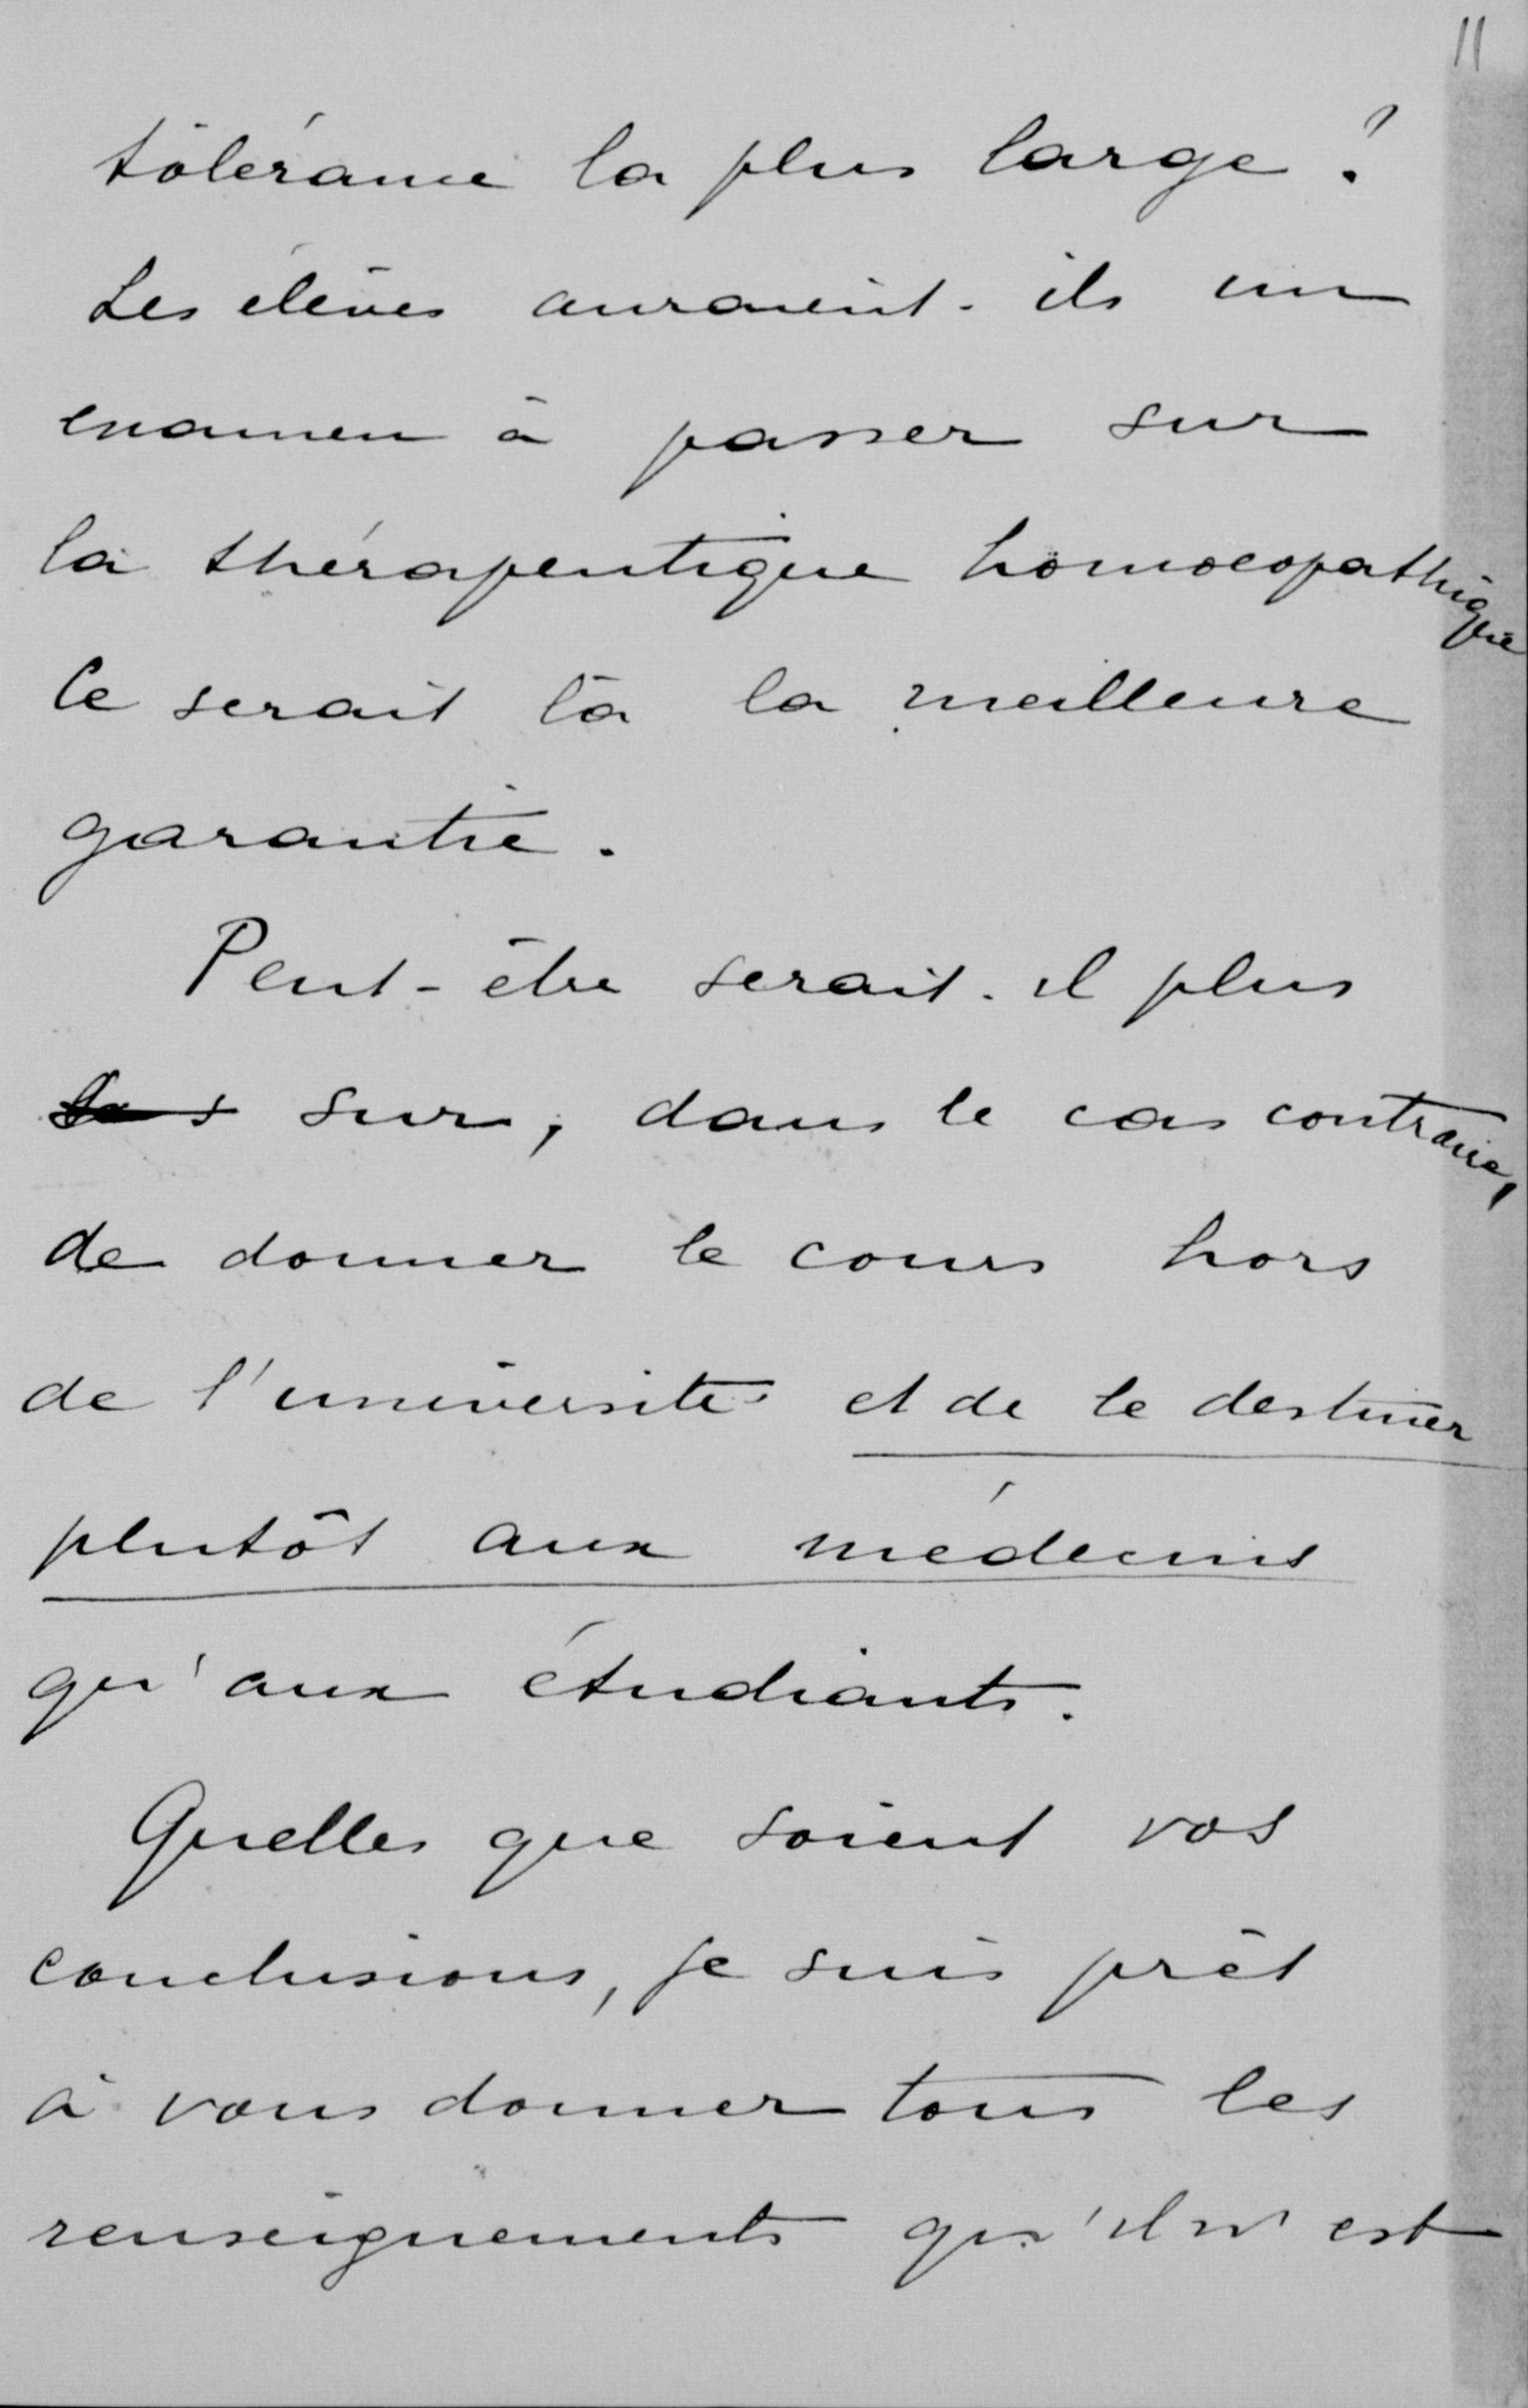 11
tolérance la plus large ?
Les élèves auraient-ils un
examen à passer sur
la thérapeutique homoeopathique
Ce serait là la meilleure
garantie.
Peut-être serait-il plus
sur, dans le cas contraire,
de donner le cours hors
de l'université et de le destiner
plutôt aux médecins
qu'aux étudiants.
Quelles que soient vos
conclusions, je suis prêt
à vous donner tous les
renseignements qu'il m'est